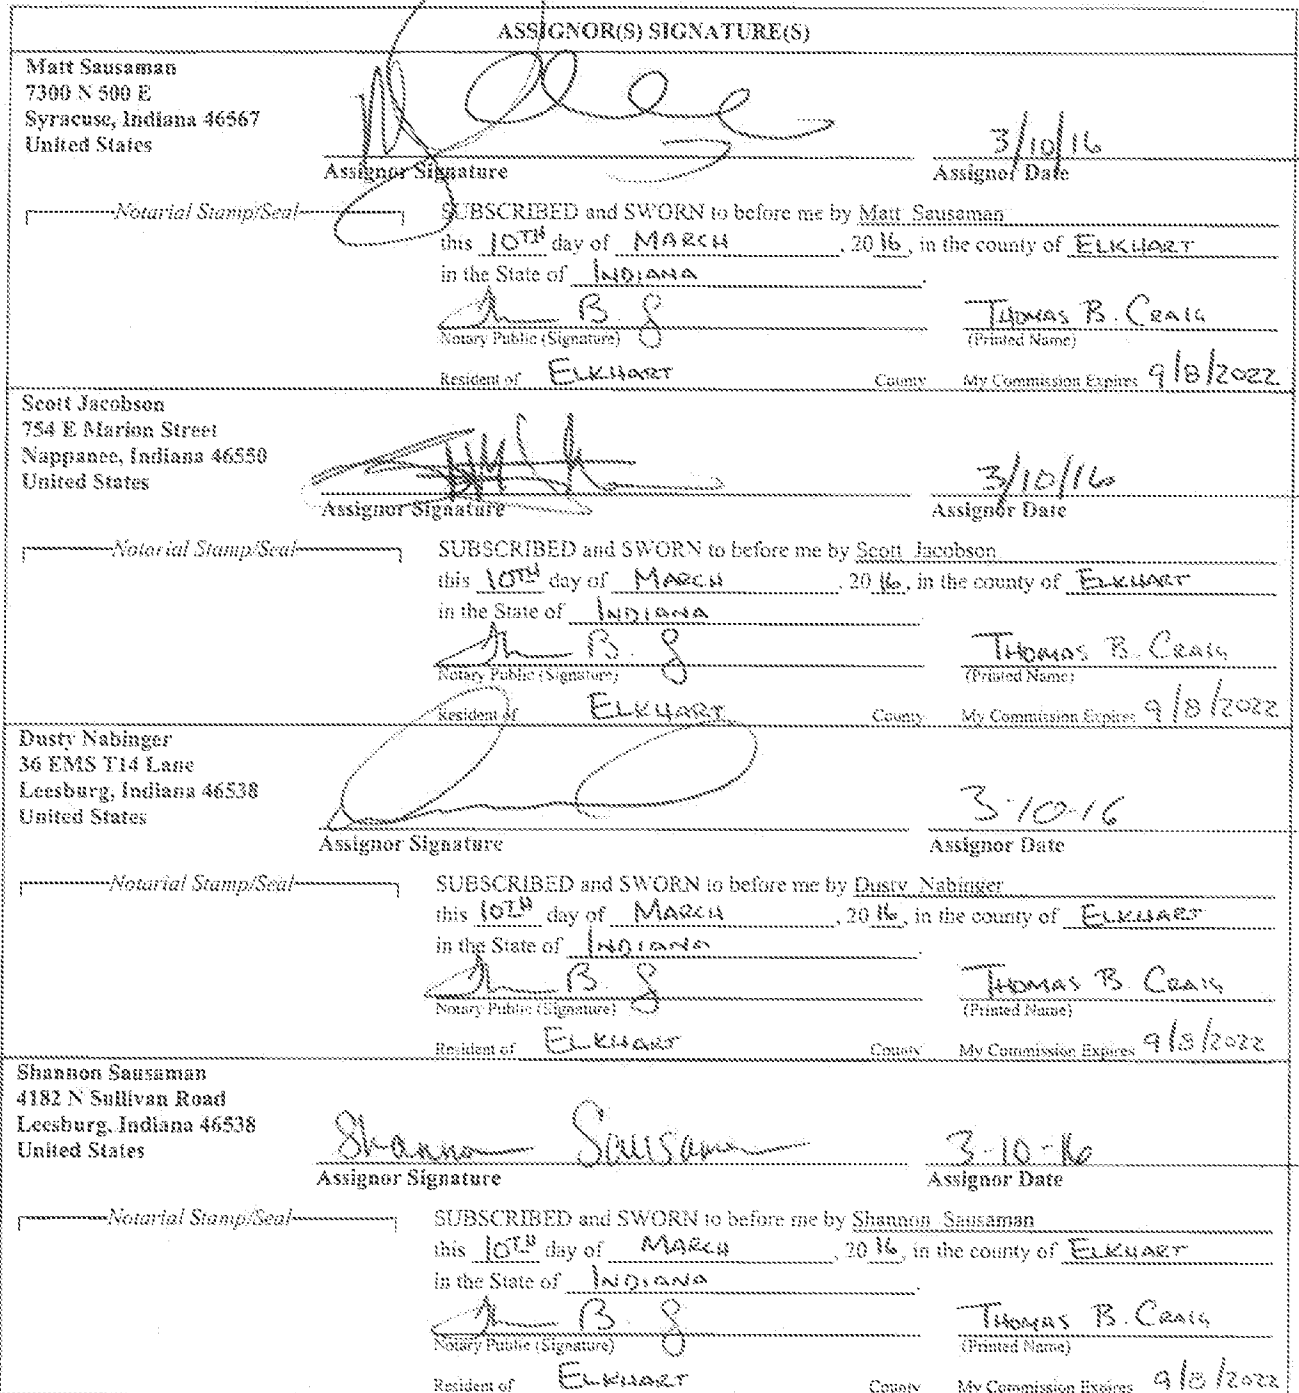 ASSIGNOR(S) SIGNATURE(S)
Matt Sausaman
7300 N 500 E
Syracuse, Indiana 46567
United States
3/10/16
Assignor Signature
Assignor Date
Notarial Stamp/Seal
SUBSCRIBED and SWORN to before me by Matt Sausaman
this 10TH day of MARCH, 20 16, in the county of ELKHART
in the State of INDIANA.
THOMAS B. CRAIG
Notary Public (Signature)
(Printed Name)
Resident of ELKHART County My Commission Expires 9/8/2022
Scott Jacobson
754 E Marion Street
Nappanee, Indiana 46550
United States
3/10/16
Assignor Signature
Assignor Date
Notarial Stamp/Seal
SUBSCRIBED and SWORN to before me by Scott Jacobson
this 10TH day of MARCH, 20 16, in the county of ELKHART
in the State of INDIANA.
THOMAS B. CRAIG
Notary Public (Signature)
(Printed Name)
Resident of ELKHART County My Commission Expires 9/8/2022
Dusty Nabinger
36 EMS T14 Lane
Leesburg, Indiana 46538
United States
3-10-16
Assignor Signature
Assignor Date
Notarial Stamp/Seal
SUBSCRIBED and SWORN to before me by Dusty Nabinger
this 10TH day of MARCH, 20 16, in the county of ELKHART
in the State of INDIANA.
THOMAS B. CRAIG
Notary Public (Signature)
(Printed Name)
Resident of ELKHART County My Commission Expires 9/8/2022
Shannon Sausaman
4182 N Sullivan Road
Leesburg, Indiana 46538
United States
Shannon Sausaman
3-10-16
Assignor Signature
Assignor Date
Notarial Stamp/Seal
SUBSCRIBED and SWORN to before me by Shannon Sausaman
this 10TH day of MARCH, 20 16, in the county of ELKHART
in the State of INDIANA.
THOMAS B. CRAIG
Notary Public (Signature)
(Printed Name)
Resident of ELKHART County My Commission Expires 9/8/2022